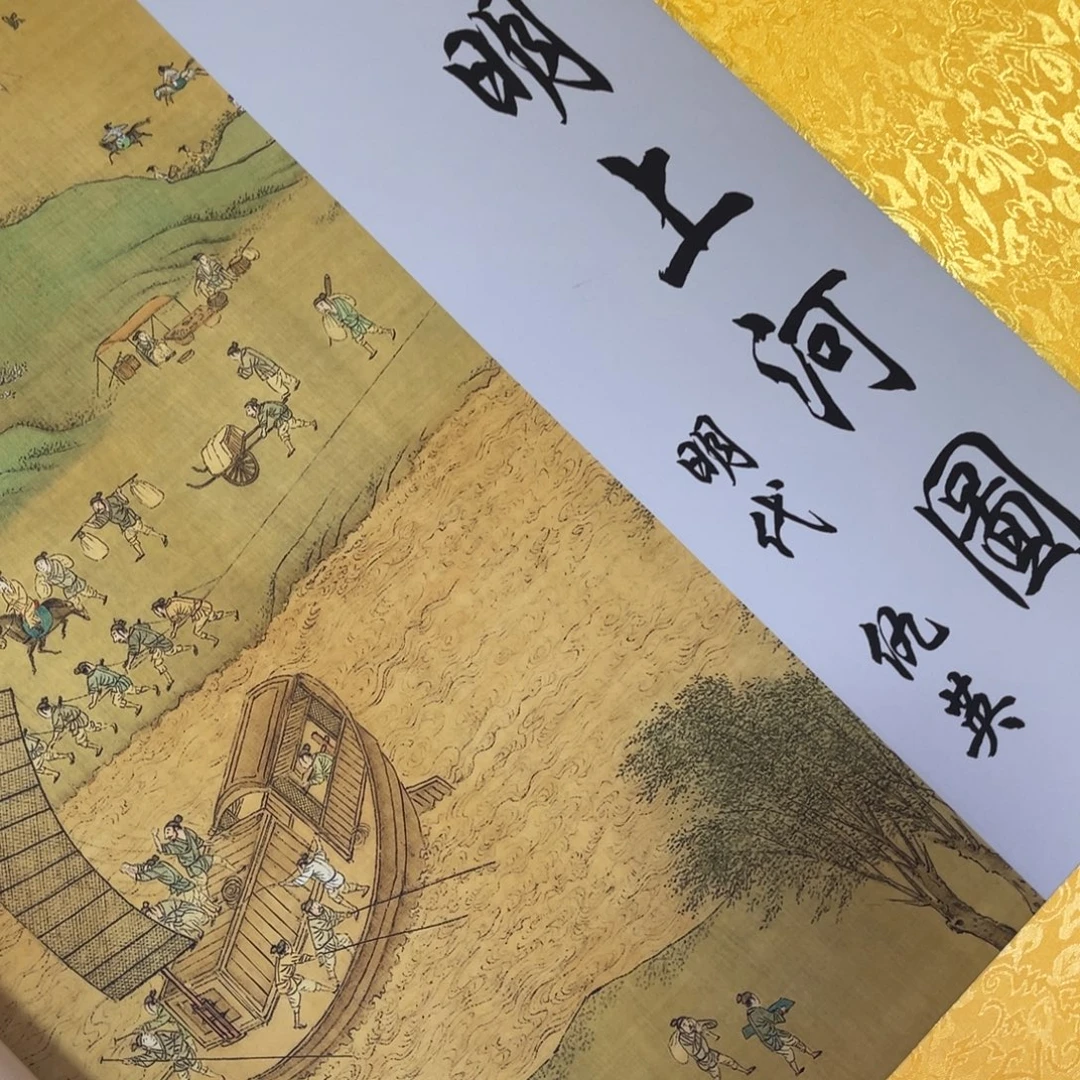 明上河圖
明代
仇英